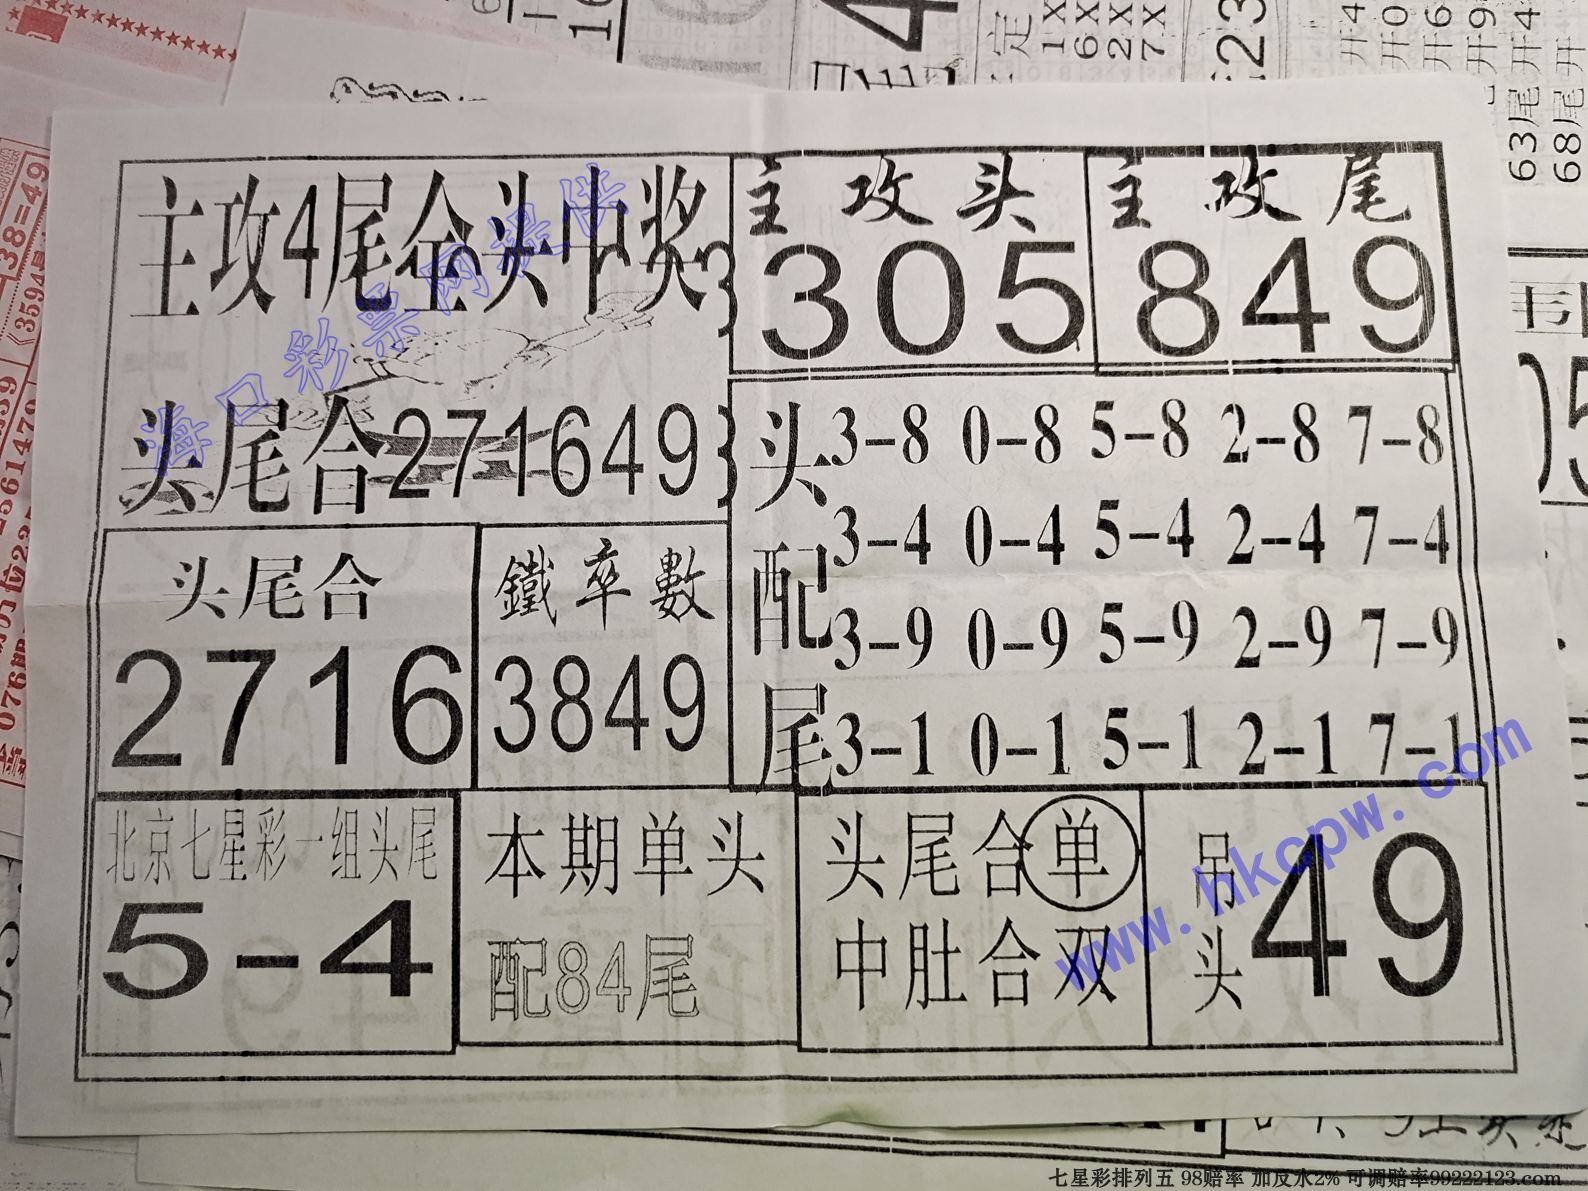 主攻4尾全头中奖
头尾合271649
主攻头
305
主攻尾
849
头配尾
3-8 0-8 5-8 2-8 7-8
3-4 0-4 5-4 2-4 7-4
3-9 0-9 5-9 2-9 7-9
3-1 0-1 5-1 2-1 7-1
头尾合
2716
鐵率數
3849
北京七星彩一组头尾
5-4
本期单头
配84尾
头尾合单
中肚合双
吊头
49
海口彩票网提供
www.hkcpw.com
63尾
68尾
七星彩排列五 98赔率 加反水2% 可调赔率99222123.com